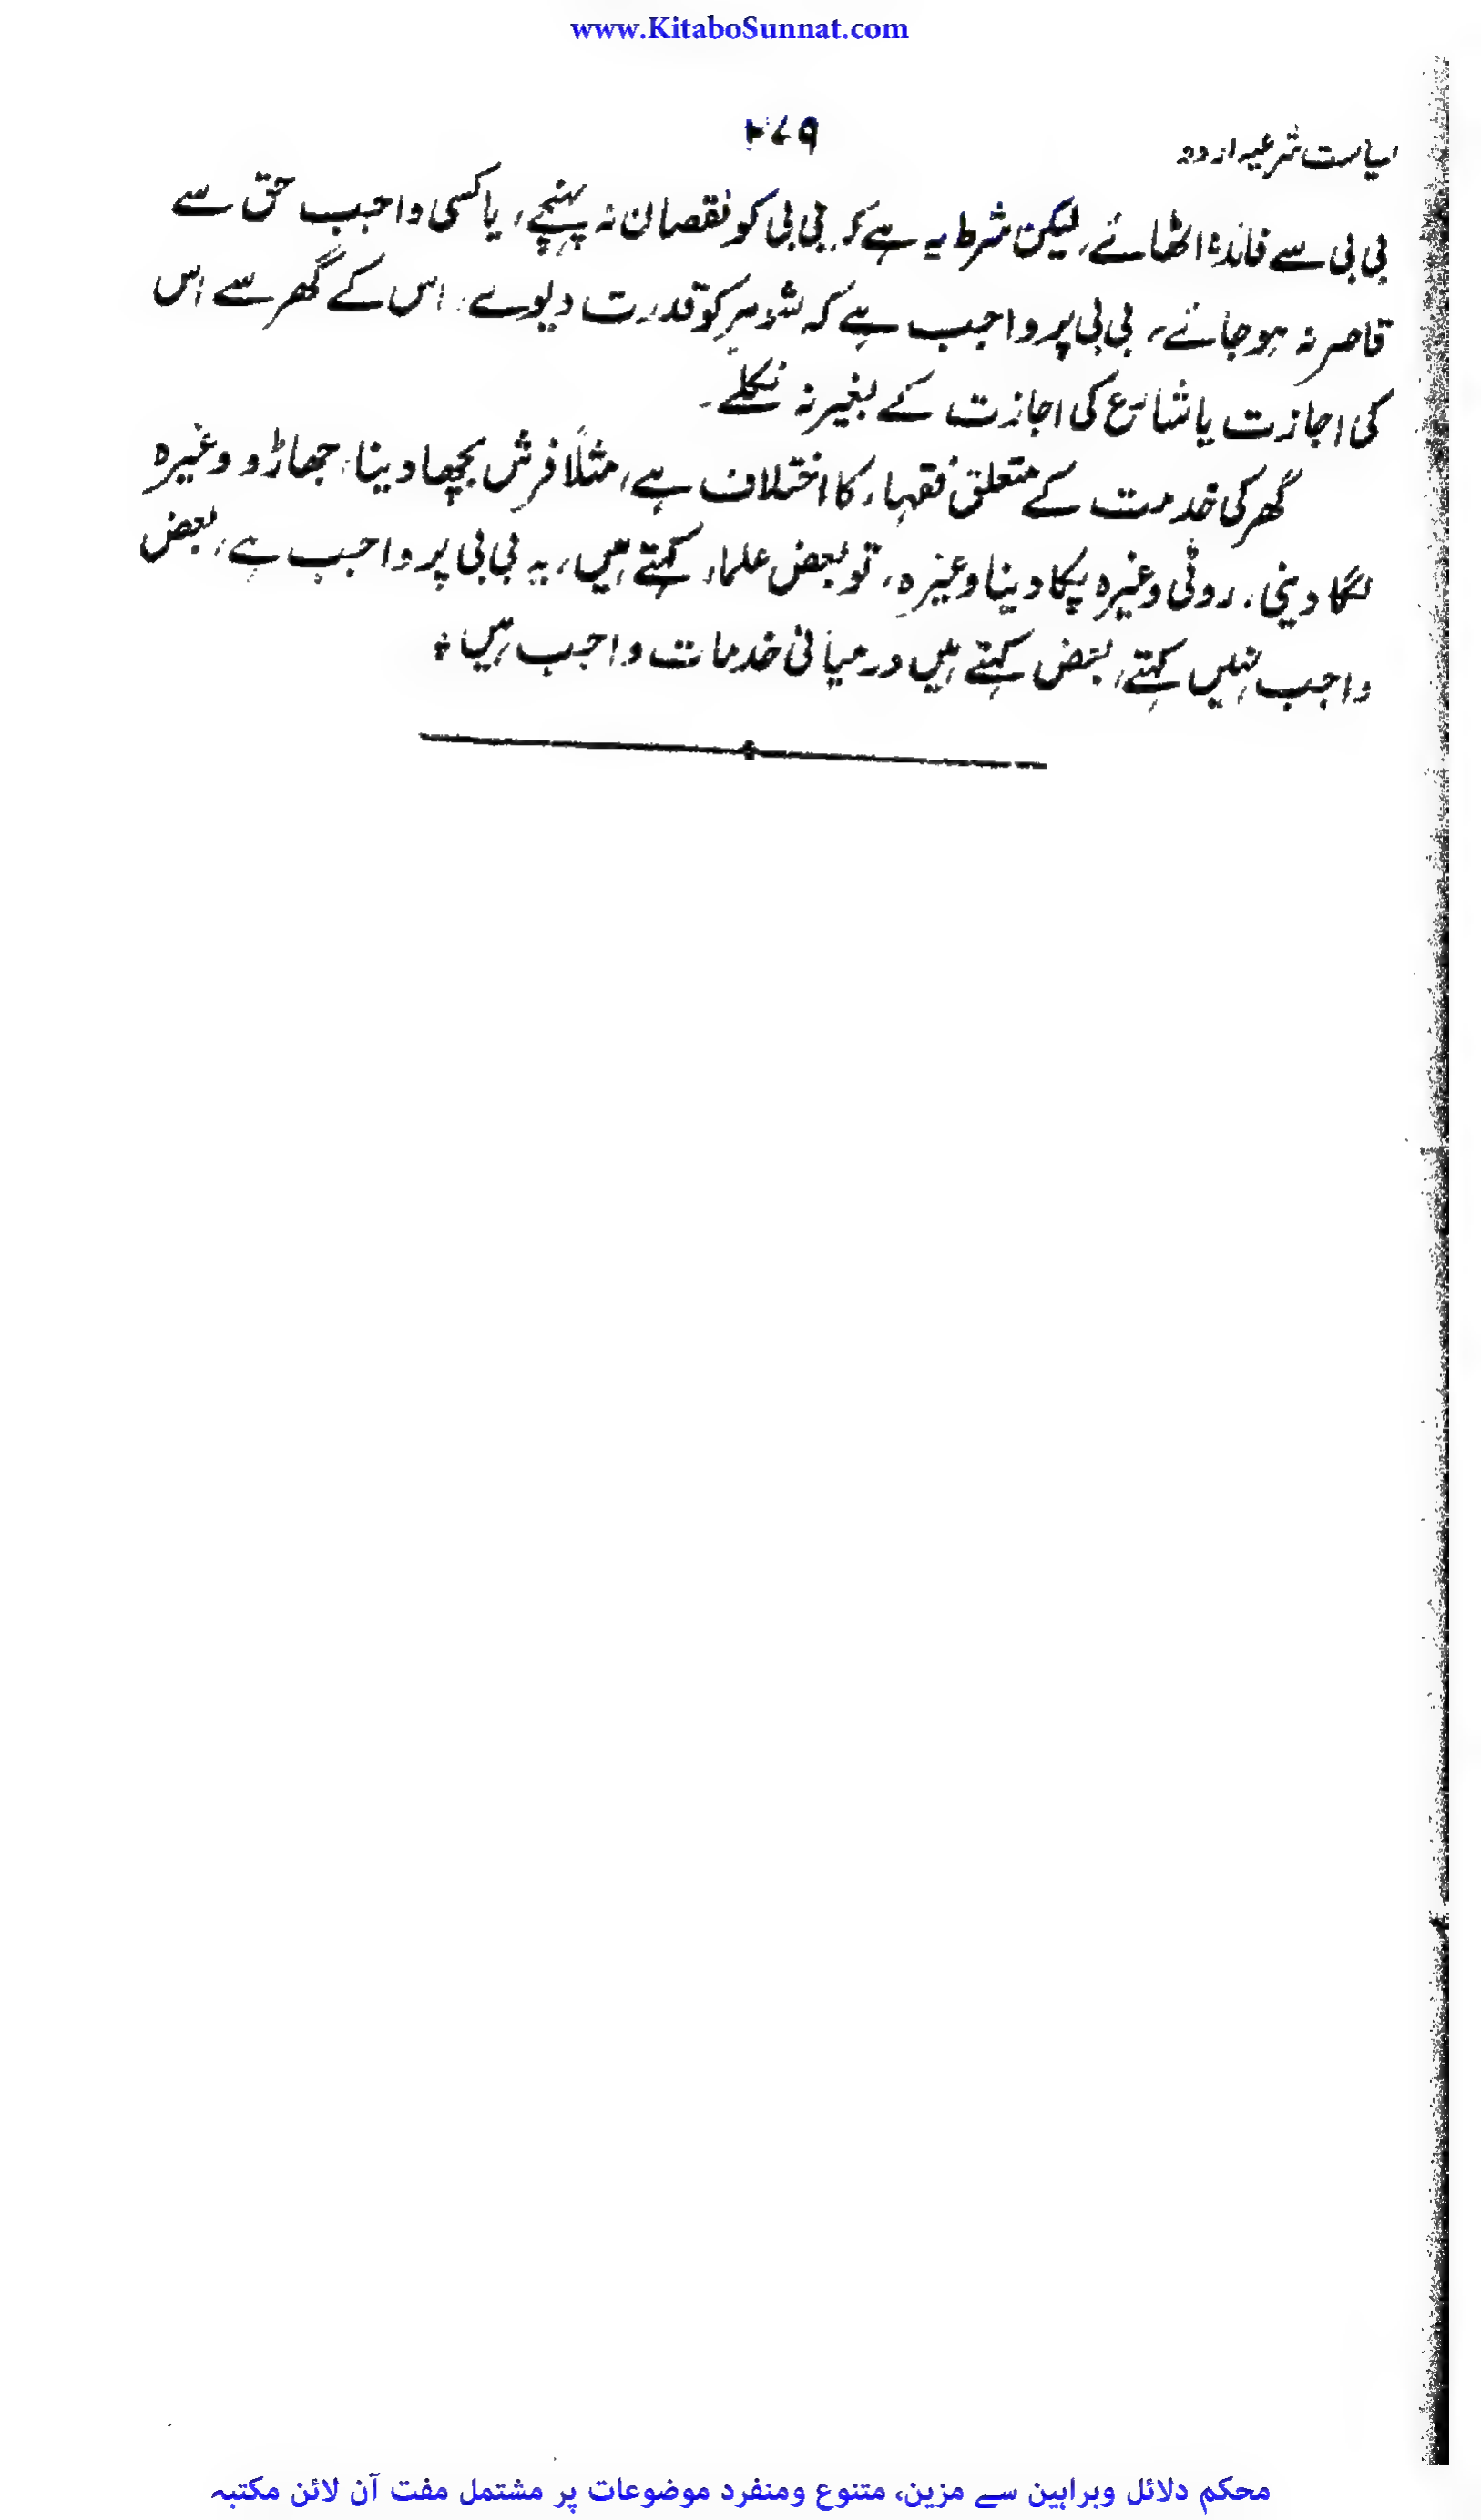 www.KitaboSunnat.com
سیاست شرعیہ اردو
۲۷۹
بی بی سے فائدہ اٹھائے، لیکن شرط یہ ہے کہ بی بی کو نقصان نہ پہنچے، یا کسی واجب حق سے
قاصر نہ ہو جائے، بی بی پر واجب ہے کہ شوہر کو قدرت دیوے، اس کے گھر سے اس
کی اجازت یا شارع کی اجازت کے بغیر نہ نکلے۔
گھر کی خدمت کے متعلق فقہاء کا اختلاف ہے، مثلاً فرش بچھا دینا، جھاڑو وغیرہ
لگا دینی، روٹی وغیرہ پکا دینا وغیرہ، تو بعض علماء کہتے ہیں، یہ بی بی پر واجب ہے، بعض
واجب نہیں کہتے، بعض کہتے ہیں درمیانی خدمات واجب ہیں؛
محکم دلائل وبراہین سے مزین، متنوع ومنفرد موضوعات پر مشتمل مفت آن لائن مکتبہ